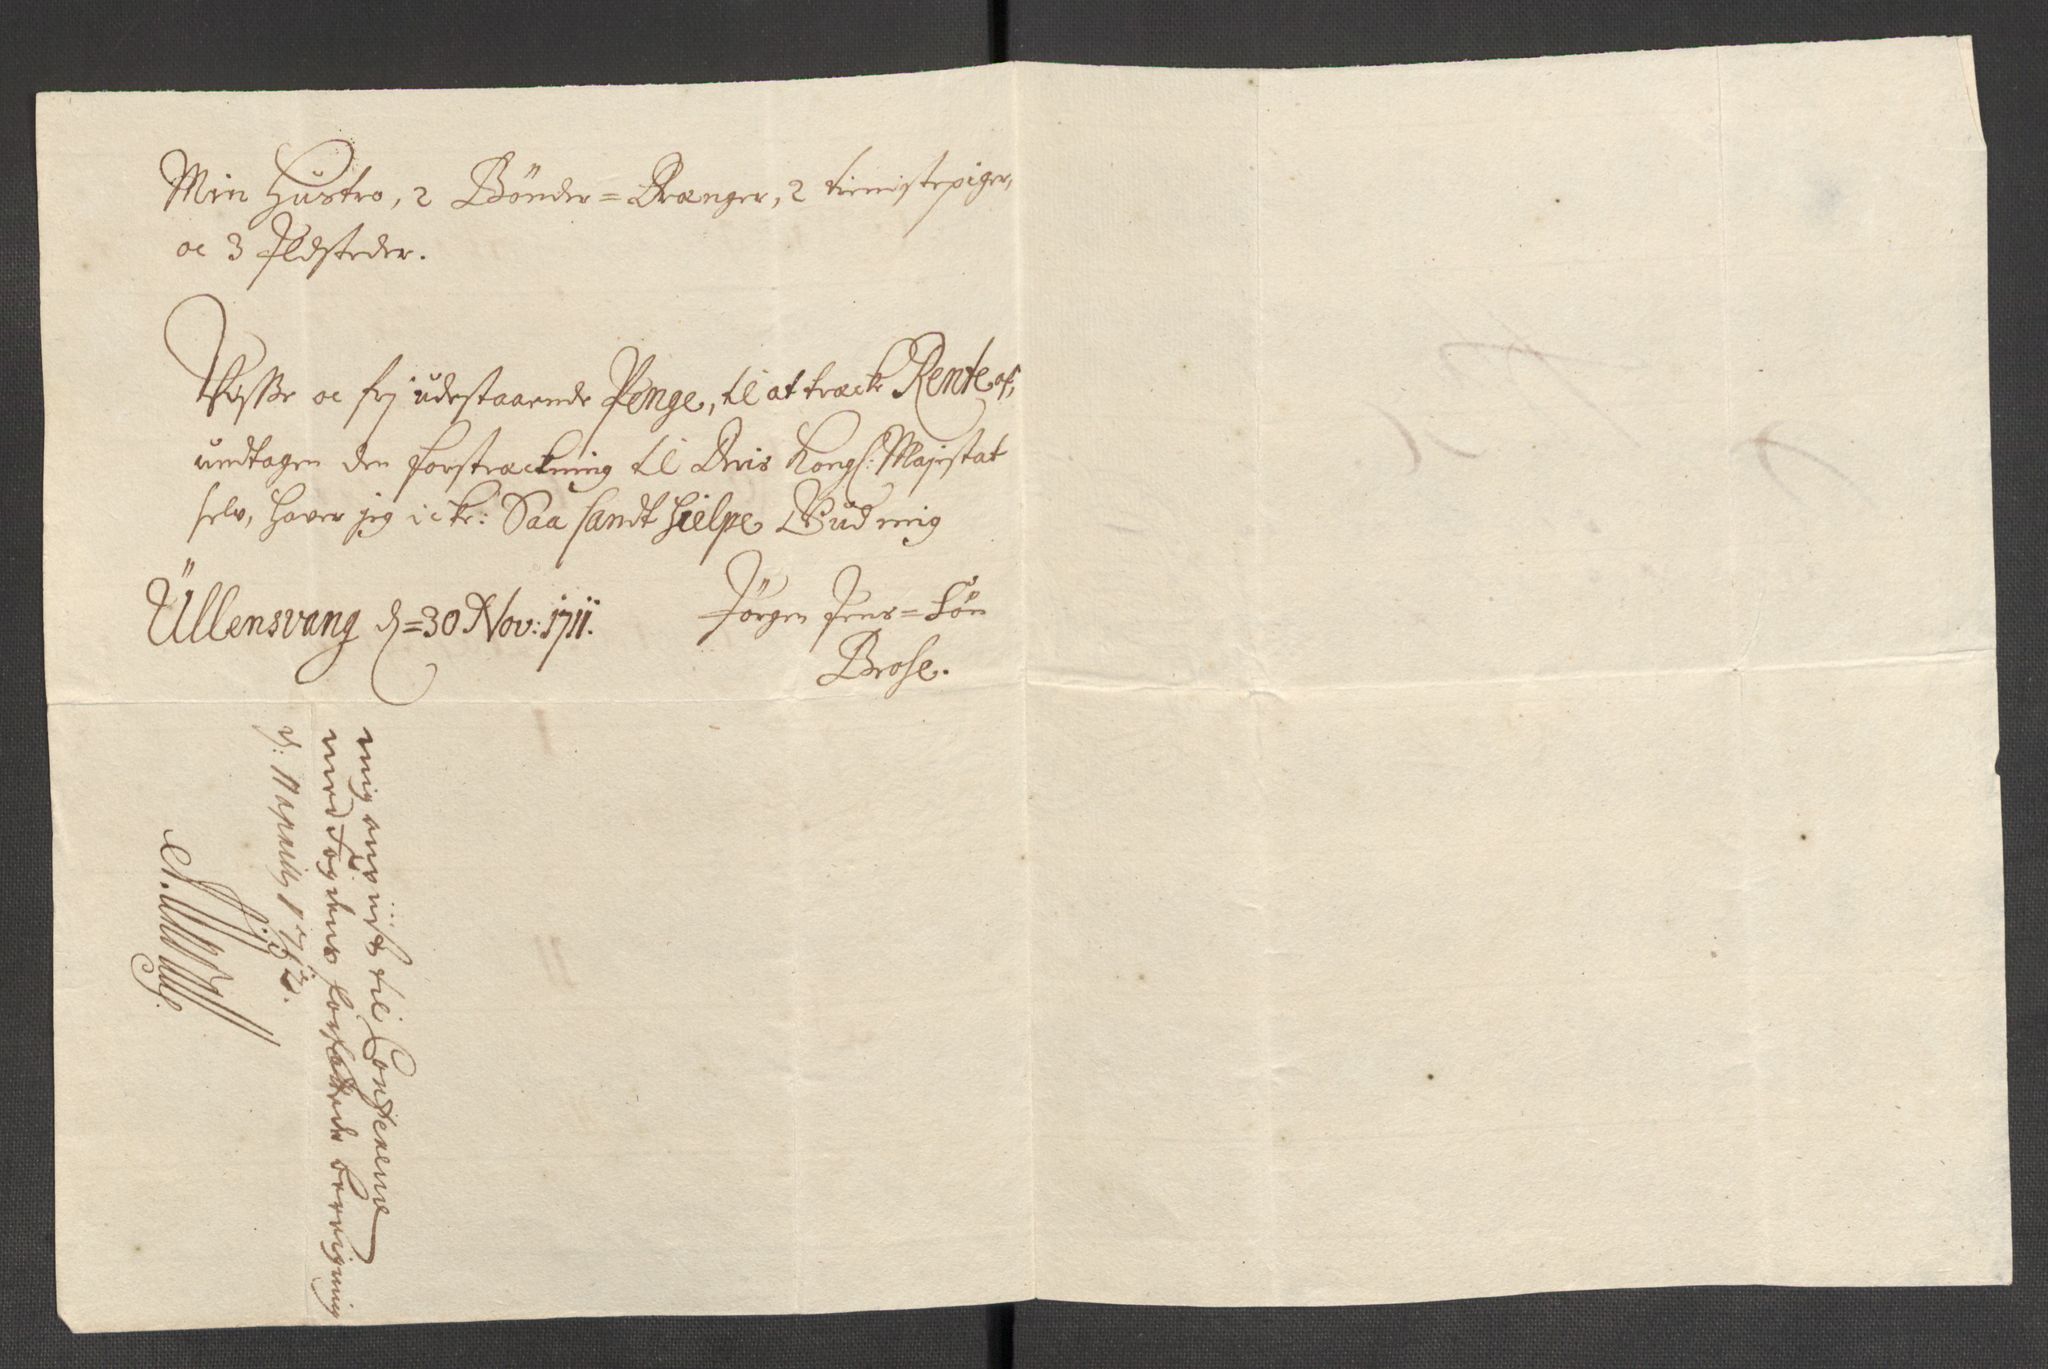 Min Hustro, 2 Bønder = Drænger, 2 tienistepiger,
oc 3 Ildsteder.
Visse oc frj udestaaende Penge, til at træcke Rente af,
undtagen den forstræckning til Deris Kongl: Majestat
selv, hafver jeg icke: Saa sandt hielpe Gud mig
Üllensvang d = 30 Nov: 1711.
Jörgen Jens = Søn
Brose.
mig anvüst til
med Fogdens forfattede
1712.